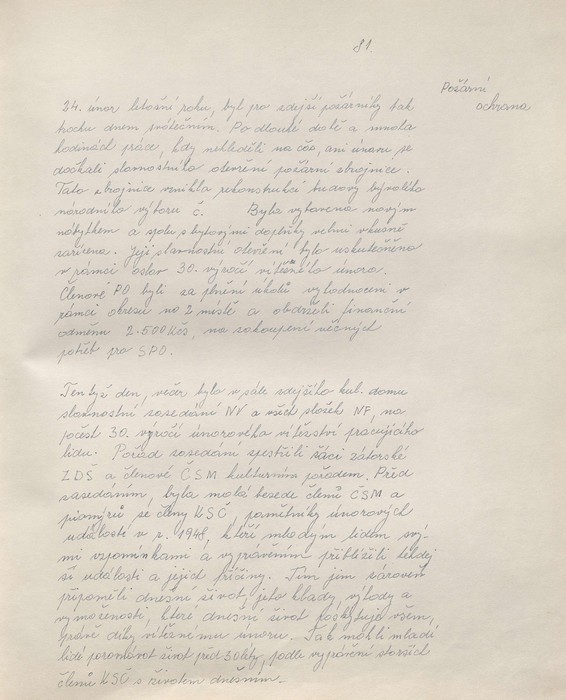 81.
Požární
ochrana
24. únor letošního roku, byl pro zdejší požárníky tak
trochu dnem svátečním. Po dlouhé době a mnoha
hodinách práce, kdy nehleděli na čas, ani únavu se
dočkali slavnostního otevření požární zbrojnice.
Tato zbrojnice vznikla rekonstrukcí budovy bývalého
národního výboru č. Byla vybavena novým
nábytkem a spolu s bytovými doplňky velmi vkusně
zařízena. Její slavnostní otevření bylo uskutečněno
v rámci oslav 30. výročí vítězného února.
Členové PO byli za plnění úkolů vyhodnoceni v
rámci okresu na 2 místě a obdrželi finanční
odměnu 2.500 Kčs, na zakoupení věcných
potřeb pro SPO.
Tentýž den, večer bylo v sále zdejšího kul. domu
slavnostní zasedání NV a všech složek NF, na
počest 30. výročí únorového vítězství pracujícího
lidu. Pořad zasedání zpestřili žáci zátorské
ZDŠ a členové ČSM kulturním pořadem. Před
zasedáním, byla malá beseda členů ČSM a
pionýrů se členy KSČ, pamětníky únorových
událostí v r. 1948, kteří mladým lidem svý-
mi vzpomínkami a vyprávěním přiblížili tehdej
ší události a jejich příčiny. Tím jim zároveň
připoměli dnešní život, jeho klady, výhody a
vymoženosti, které dnešní život poskytuje všem,
právě díky vítěznému únoru. Tak mohli mladí
lidé porovnat život před 30 lety, podle vyprávění starších
členů KSČ s životem dnešním.